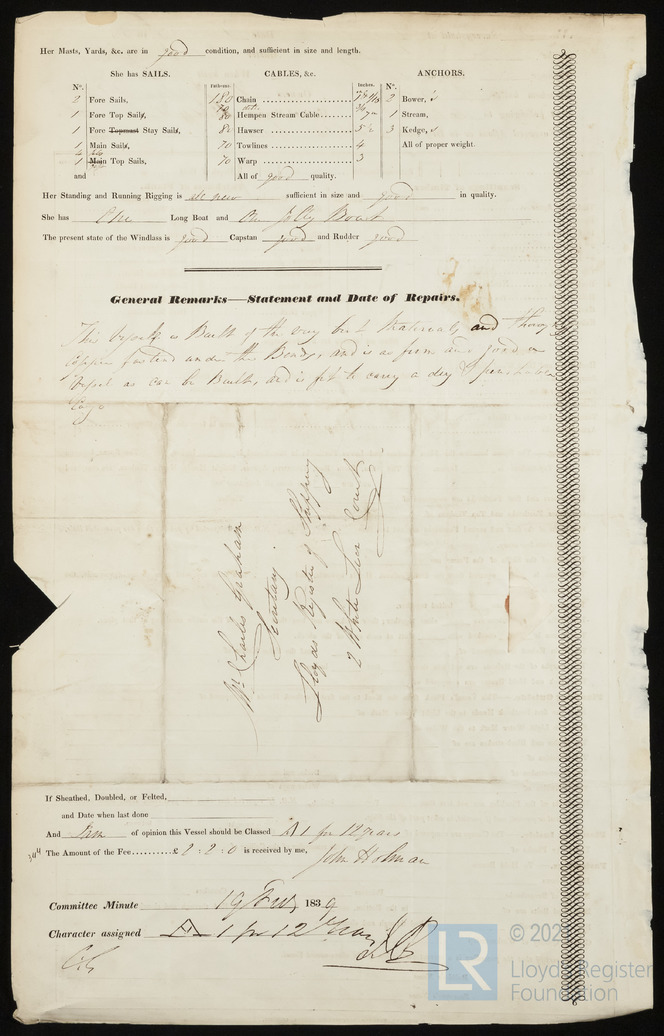 Her Masts, Yards, &c. are in good condition, and sufficient in size and length.
She has SAILS.
CABLES, &c.
ANCHORS.
N°.
Fathoms.
Inches.
N°.
2 Fore Sails,
1 Fore Top Sails,
1 Fore Topmast Stay Sails,
1 Main Sails,
1 Main Top Sails,
and
Chain
80 Hempen Stream Cable
80 Hawser
70 Towlines 4
70 Warp 3
All of good quality.
2 Bower,
1 Stream,
3 Kedge,
All of proper weight.
Her Standing and Running Rigging is sufficient in size and good in quality.
She has One Long Boat and One Jolly Boat
The present state of the Windlass is good Capstan good and Rudder good
General Remarks—Statement and Date of Repairs.
This is Built of the very best Materials, and
Copper fastened under the Bends, and is as firm and good a
Vessel as can be Built, and is fit to carry a dry &
Cargo
Mr. Charles Graham
Secretary
Lloyds Register of Shipping
2 White Lion Court
If Sheathed, Doubled, or Felted,
and Date when last done
And am of opinion this Vessel should be Classed A 1 for 12 years
The Amount of the Fee..........£ 2 : 2 : 0 is received by me, John Holman
Committee Minute 19 1839
Character assigned A 1 for 12 Years
Lloyd's Register
Foundation
LR